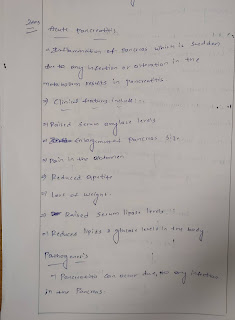 Acute Pancreatitis
→ Inflammation of pancreas which is sudden
due to any infection or obstruction in the
results in pancreatitis
→ Clinical features include :-
→ Raised serum amylase levels
→ enlargement pancreas size
→ Pain in the abdomen
→ Reduced appetite
→ Loss of weight.
→ Raised serum lipase levels
→ Reduced lipids & glucose levels in the body
→ Pancreatitis can occur due to any infection
in the Pancreas.